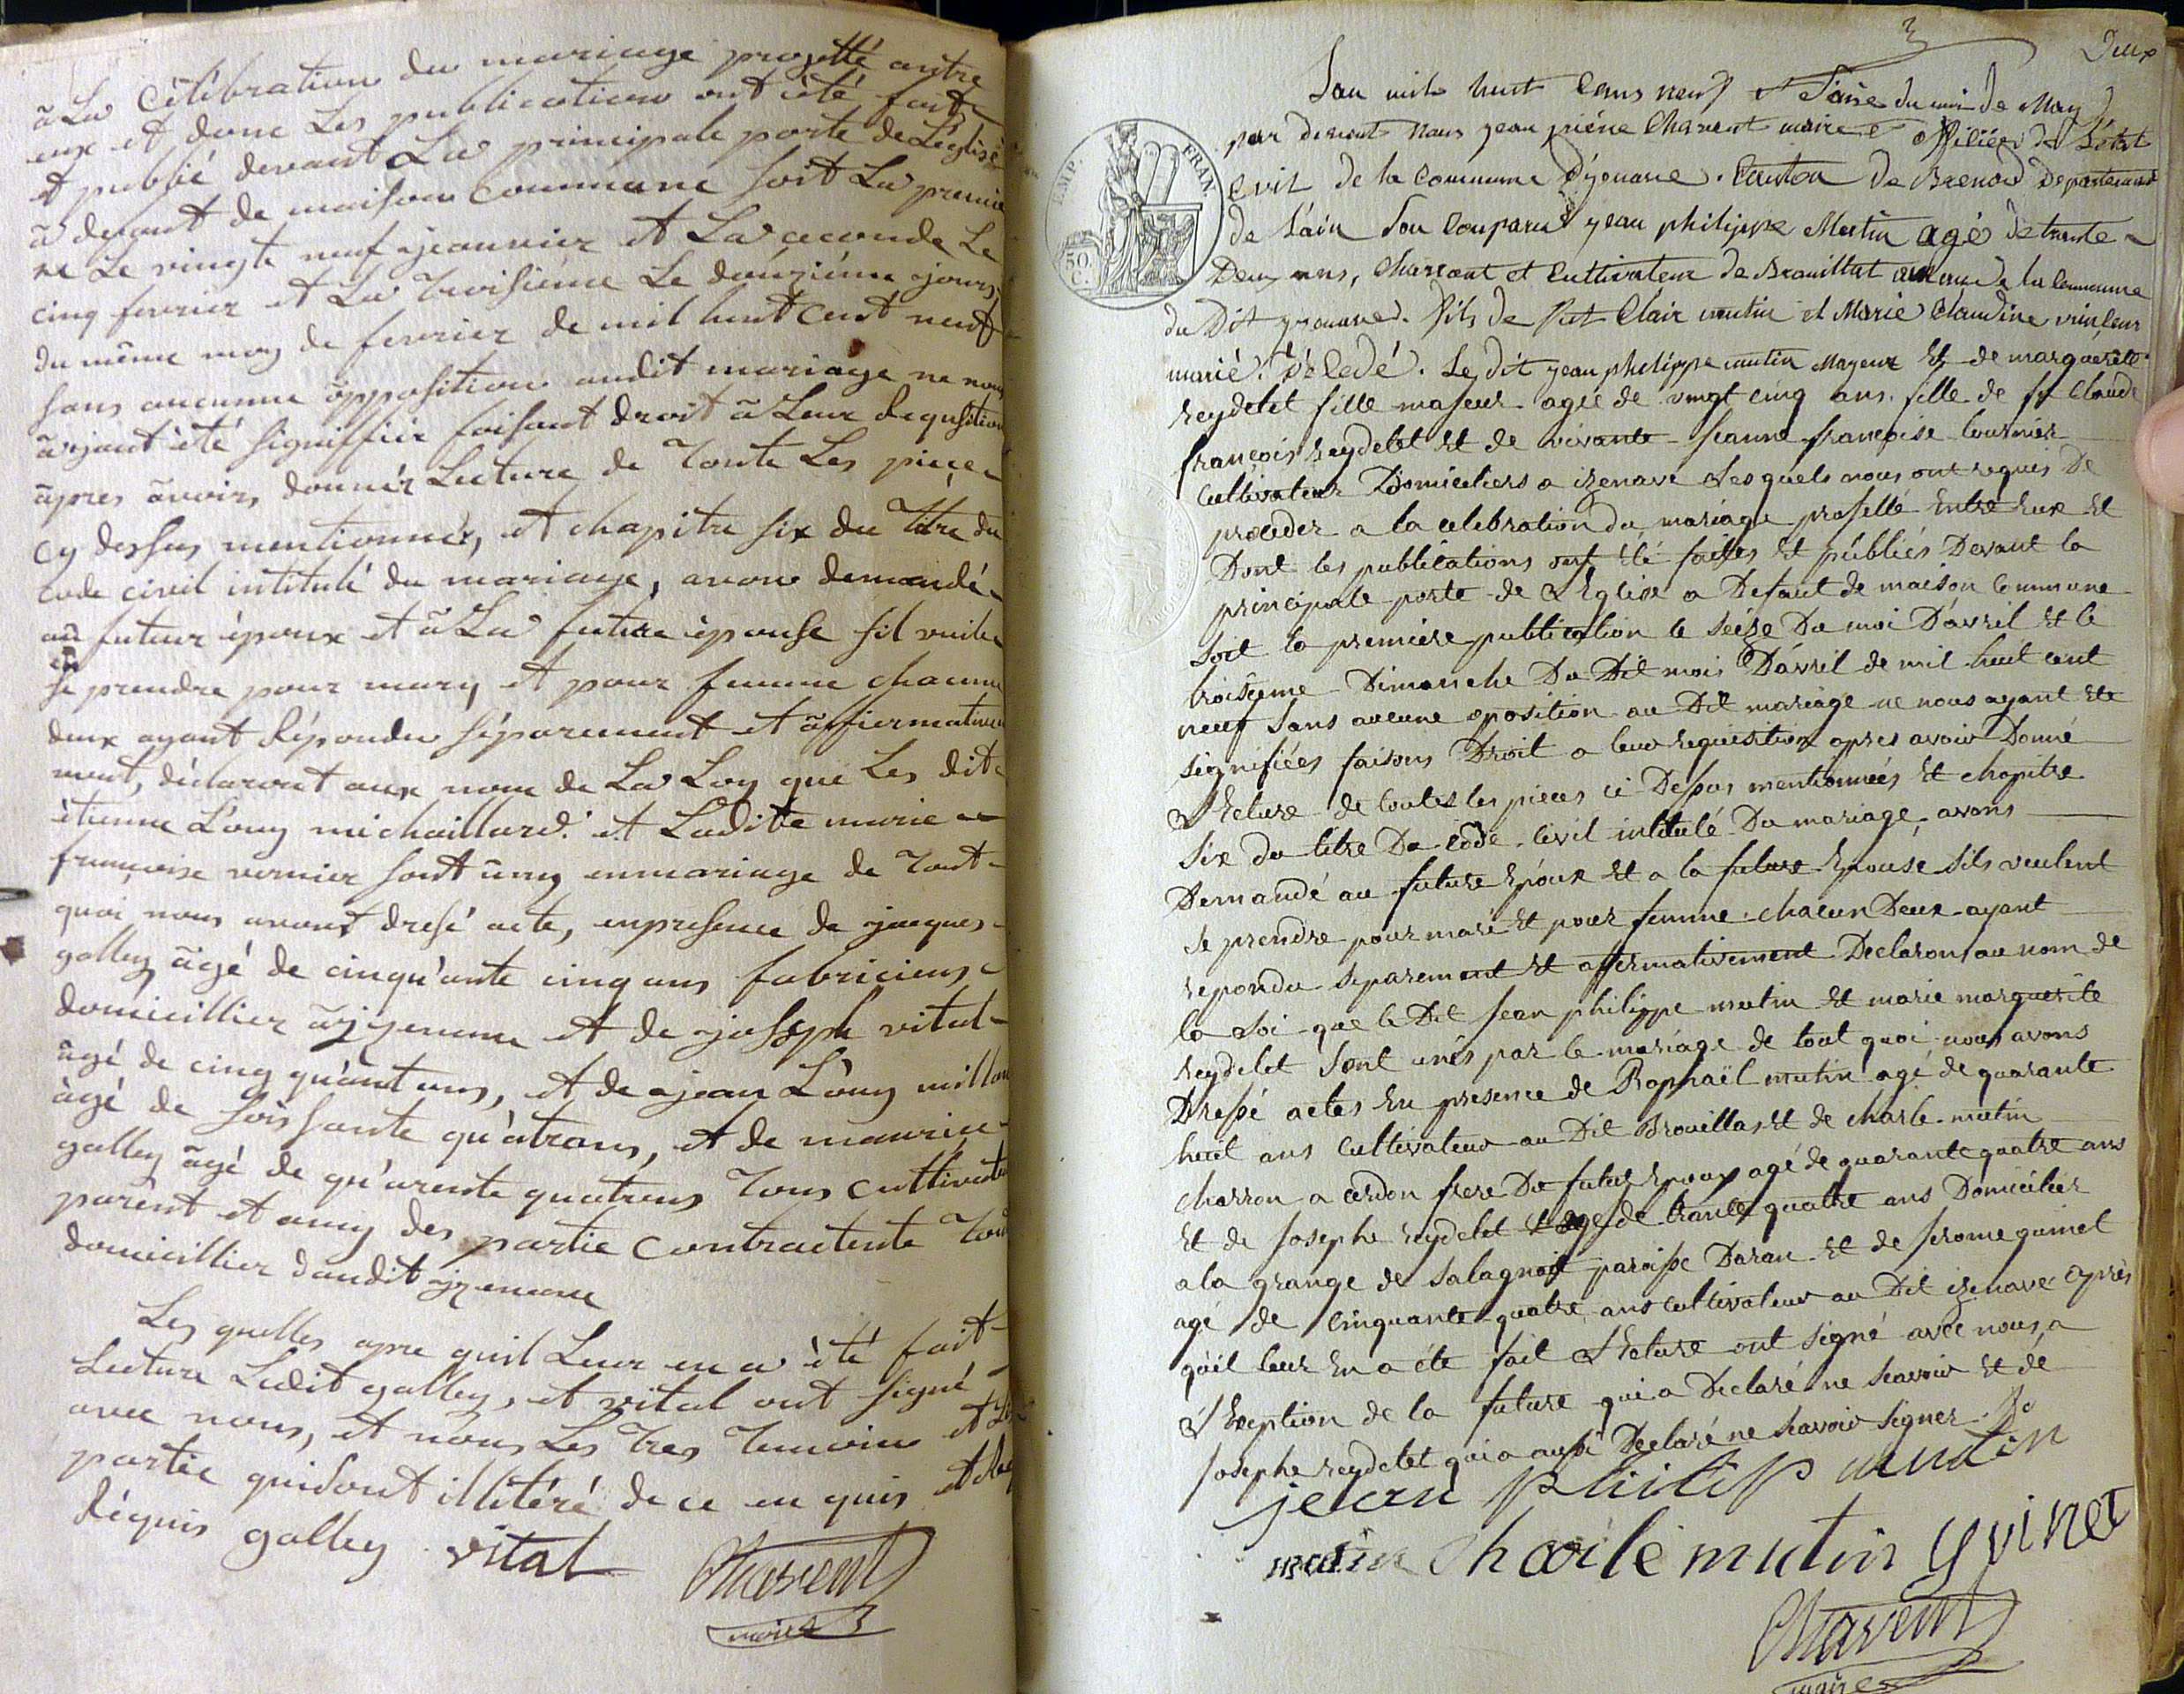 à La Célébration du mariage projetté antre
eux et donc Les publication ont été fait
et publié devant La principale porte de L'eglise
à defaut de maison Commune soit La premie
re Le vingte neuf jeanvier et La ceconde Le
cinq fevrier et La troisiéme Le douziéme jours
du même moy de fevrier de mil huit Cent neuf
sans aucunne opposition audit mariage ne nous
àyant été signiffier faisant droit à Leur Requsition
àpres àvoirs donnér Lecture de toute Les piece
cy dessus mentionnér, et chapitre six du titre du
code civil intitulé du mariage, avons demandé
au futeur époux et à La future épouse sil veule
se prendre pour mary et pour femme chacunn
deux ayant Répondu séparement et àffiermativem
ment, déclaront aux nom de La Loy que Les dit
étienne Louy michaillard et Laditte marie
françoise vernier sont uny enmariage de tout
quoi nous avons dresé acte, enpresence de jacques
galley àgé de cinqu'ante cinq ans fabriciens
domicillier àjzenave et de josseph vital
àgé de cinq quant ans, et de jean Louy millon
àgé de soissante qu'atrans, et de maurice
galley àgé de qu'arente quatrans tous Cultivate
parent et amy des partie Contractente tous
domicillier daudit jzenave
Les quelles apre quil Leur en a été fait
Lecture Ledit galley, et vital ont signé
avec nous, et nous Les tres temoins et Les
partie quisont illitéré de ce en quis et de
Réquis galley vital
Chavent
maire
3
Deux
L'an mil huit Cens neuf et Saise du moi de May
par devant nous jean Chavent maire et officiér de L'état
Civil de la Commune D'yzenave. Canton de Brenod Departement
de L'ain son Comparus jean philippe Mutin agé de trante
Deux ans, Charront et Cultivateur de Brouillat de la Commune
du Dit yzenave. fils de fut Clair mutin et Marie Claudine
marié. Décedé. Le dit jean philippe mutin Mayeur Et de marguérite
reydelet fille majeur agée de vingt cinq ans. fille de ft Claude
françois reydelet Et de vivante Jeanne françoise tournier
Cultivateur Domiciliers a izenave Lesquels nous ont requis De
proceder a la celebration du mariage projetté Entre Eux Et
Dont les publications ont Eté faites Et publiés Devant la
principale porte de L'Eglise a Defaut de maison Commune
Soit la premiére publication le Seize Du moi D'avril Et le
troisieme Dimanche Du Dit mois D'avril de mil huit cent
neuf Sans aucune oposition au Dit mariage ne nous ayant Ete
signifiées faisons Droit a leur requisition apres avoir Donné
Lecture de toutes les pieces ci Dessus mentionnées Et chapitre
Six du titre Du code Civil intitulé Du mariage, avons
Demandé au future Epoux Et a la future Epouse sils veulent
se prendre pour mari Et pour femme chacun Deux ayant
repondu separement Et affermativement Declarons au nom de
la Loi que le Dit jean philippe mutin Et marie marguerite
reydelet Sont unis par le mariage de tout quoi nous avons
Dressé actes En presence de Raphaël mutin agé de quarante
huit ans Cultivateur au Dit Brouillas Et de charle mutin
charron a cerdon frere Du futur Epoux agé de quarante quatre ans
Et de Josephe reydelet agé de trante quatre ans Domicilier
a la grange de Salagnat paroisse Daran Et de Jerome guinet
agé de Cinquante quatre ans cultivateur au Dit izenave Après
qu'il leur En a été fait Lecture ont Signé avec nous, a
L'Exeption de la future qui a Declaré ne Scavoir Et de
Josephe reydelet qui a aussi Declaré ne Scavoir Signer.
jean philip mutin
mutin charle mutin gvinet
Chavent
maire
EMP. FRAN.
50 C.